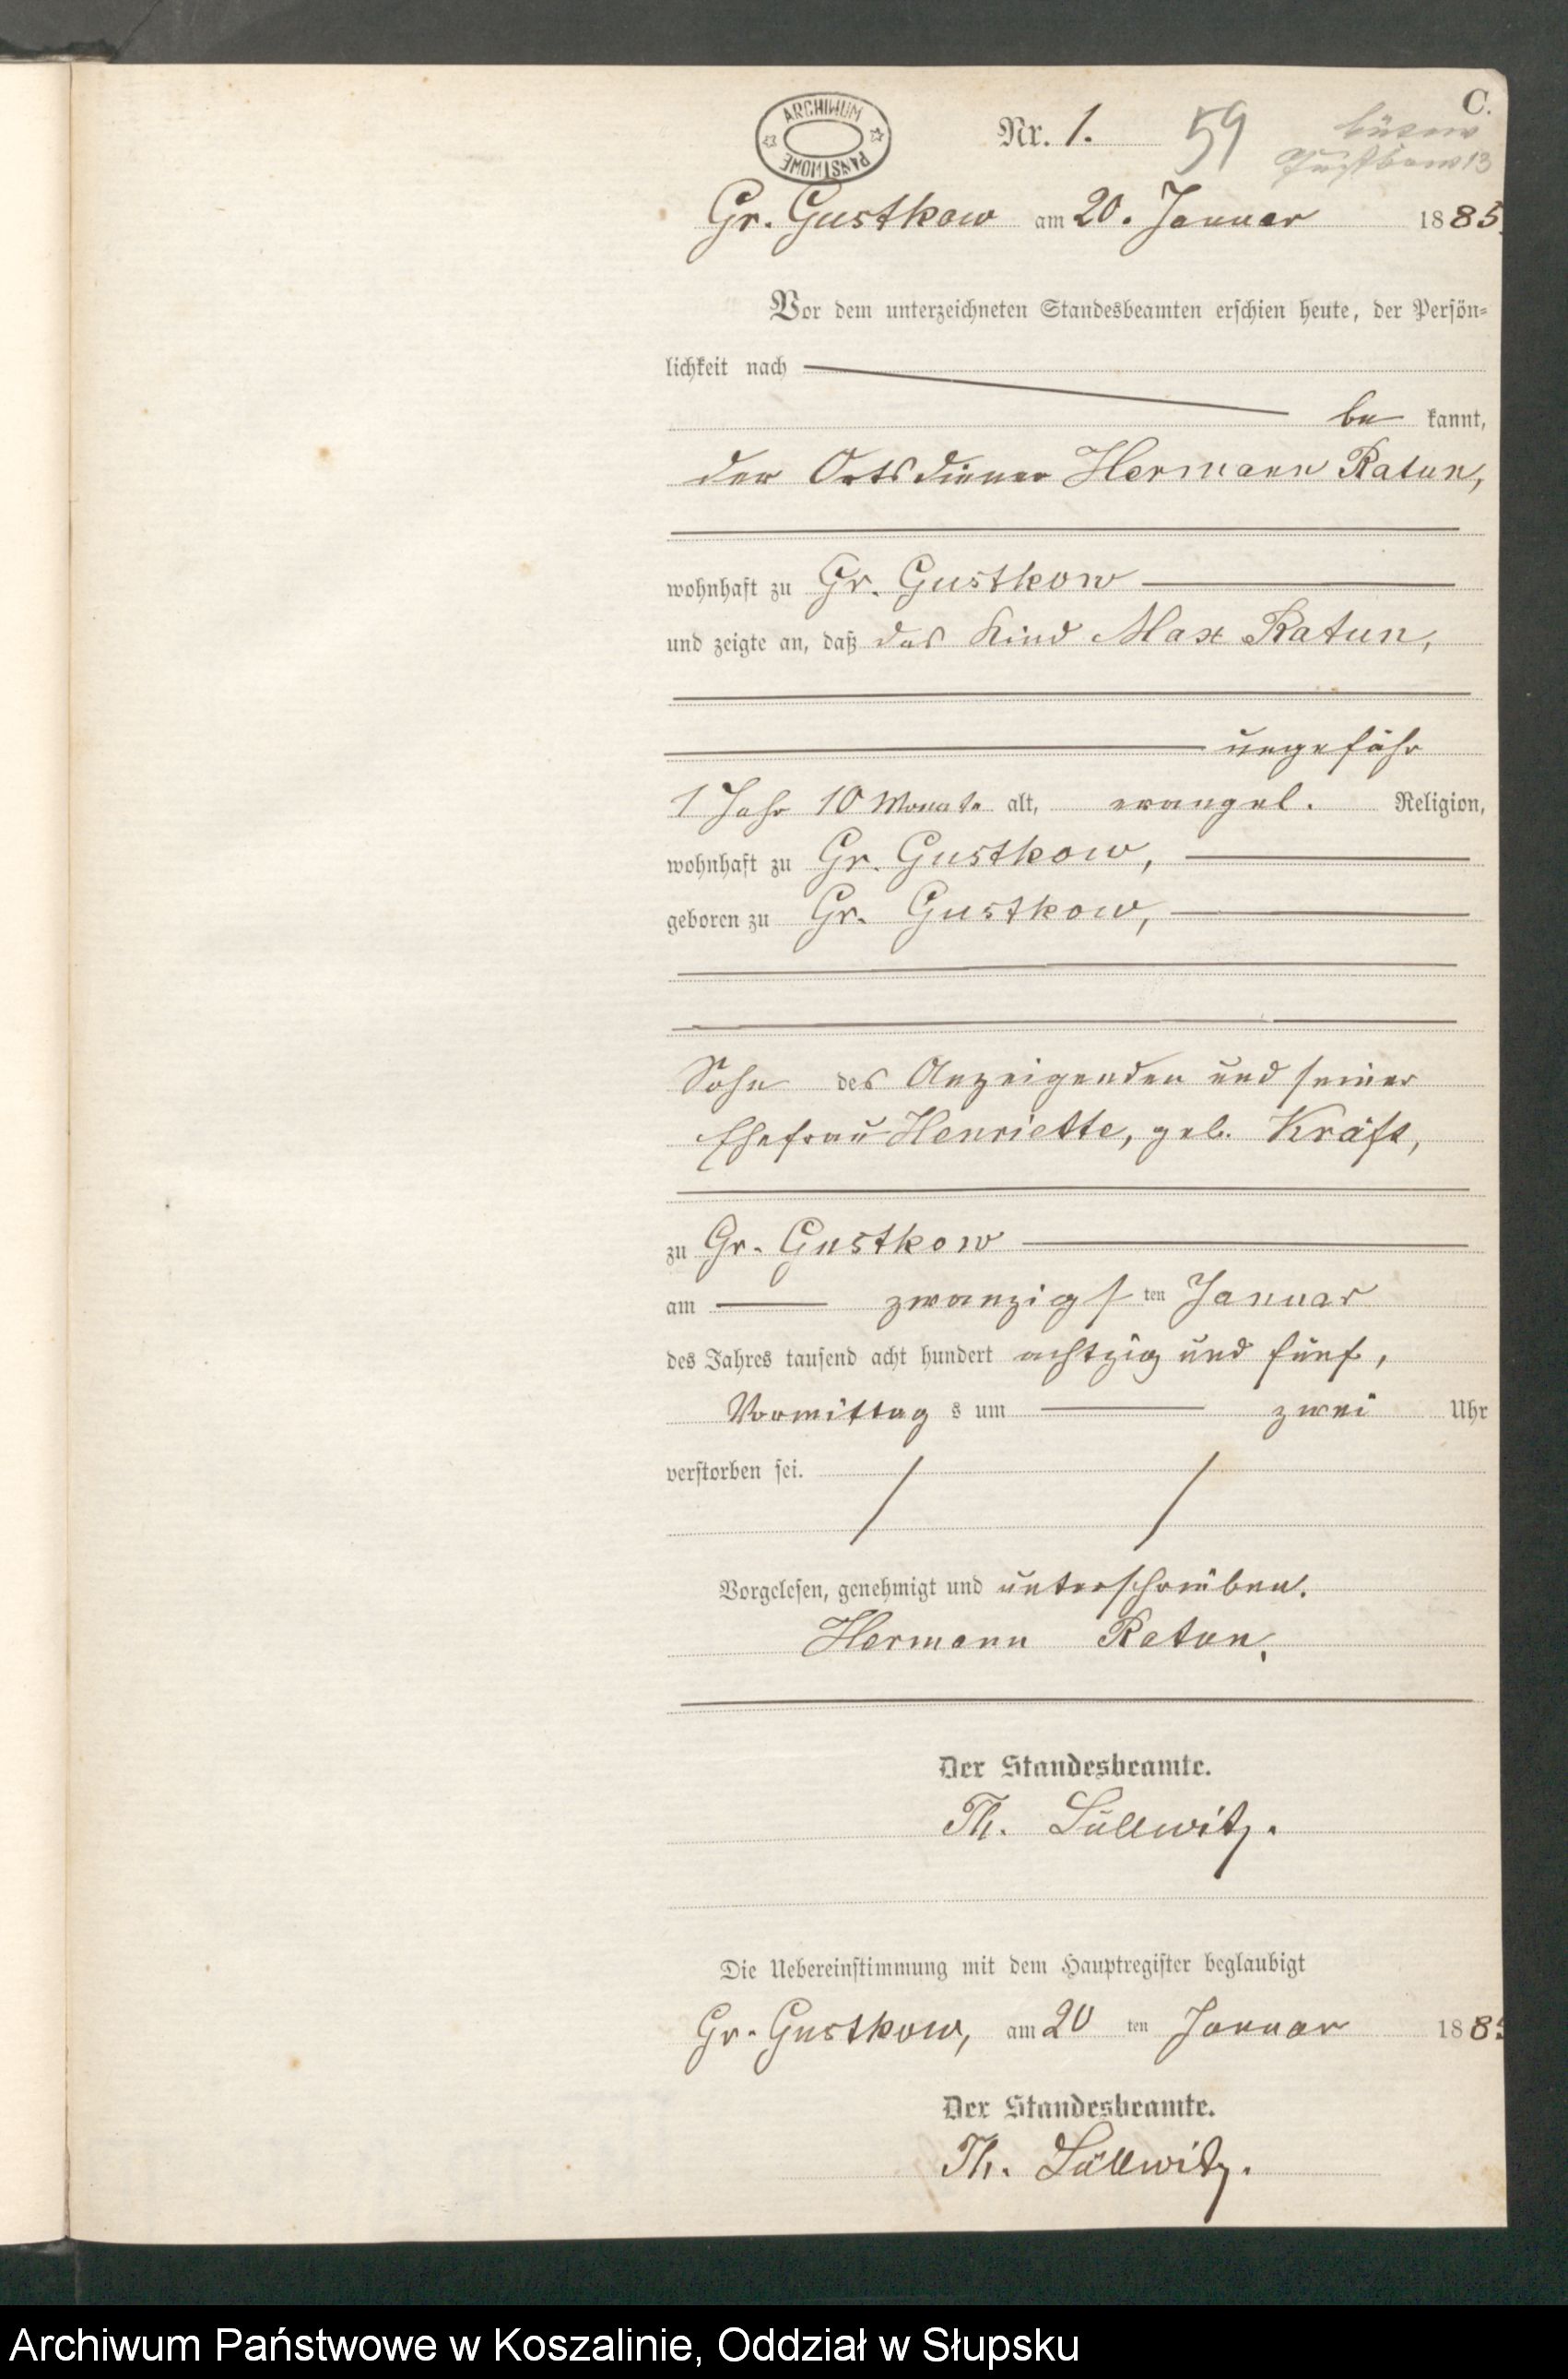 C.
ARCHIWUM PAŃSTWOWE
Nr. 1. 59
Gr. Gustkow am 20. Januar 1885.
Vor dem unterzeichneten Standesbeamten erschien heute, der Persön-
lichkeit nach
be kannt,
der Ortsdiener Hermann Ratun,
wohnhaft zu Gr. Gustkow
und zeigte an, daß das Kind Max Ratun,
ungefähr
1 Jahr 10 Monate alt, evangel. Religion,
wohnhaft zu Gr. Gustkow,
geboren zu Gr. Gustkow,
Sohn des Anzeigenden und seiner
Ehefrau Henriette, geb. Kräft,
zu Gr. Gustkow
am zwanzigsten Januar
des Jahres tausend acht hundert achtzig und fünf,
Vormittags um zwei Uhr
verstorben sei.
Vorgelesen, genehmigt und unterschrieben.
Hermann Ratun.
Der Standesbeamte.
Th. Lüllwitz.
Die Uebereinstimmung mit dem Hauptregister beglaubigt
Gr. Gustkow, am 20 ten Januar 188
Der Standesbeamte.
Th. Lüllwitz.
Archiwum Państwowe w Koszalinie, Oddział w Słupsku